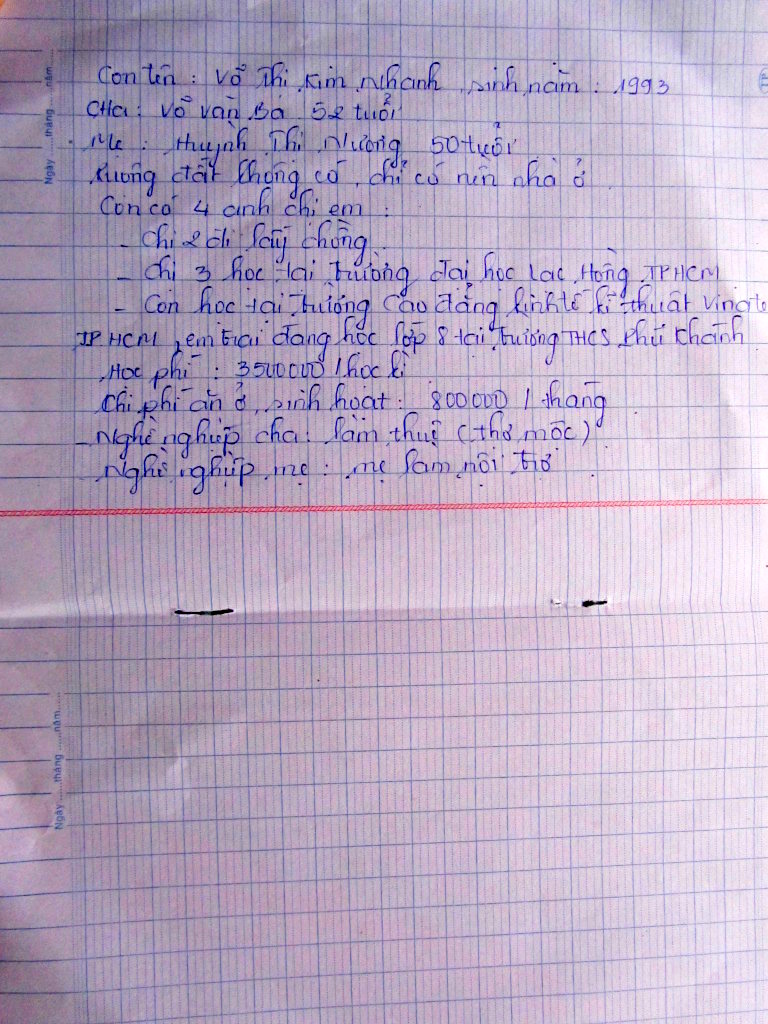 Con tên : Võ Thị Kim Nhanh, sinh năm : 1993
CHa : Võ Văn Ba 52 tuổi
Mẹ : Huỳnh Thị Nương 50 tuổi
Ruộng đất không có, chỉ có nền nhà ở
Con có 4 anh chị em :
- Chị 2 đi lấy chồng
- Chị 3 học tại trường đại học Lạc Hồng TPHCM
- Con học tại trường Cao đẳng kinh tế kĩ thuật Vinate
TP HCM, em trai đang học lớp 8 tại trường THCS Phú Khánh
Học phí : 3500000 / học kì
Chi phí ăn ở, sinh hoạt : 800000 / tháng
- Nghề nghiệp cha : làm thuê (thợ mộc)
Nghề nghiệp mẹ : mẹ làm nội trợ
Ngày ......tháng ......năm......
Ngày ......tháng ......năm......